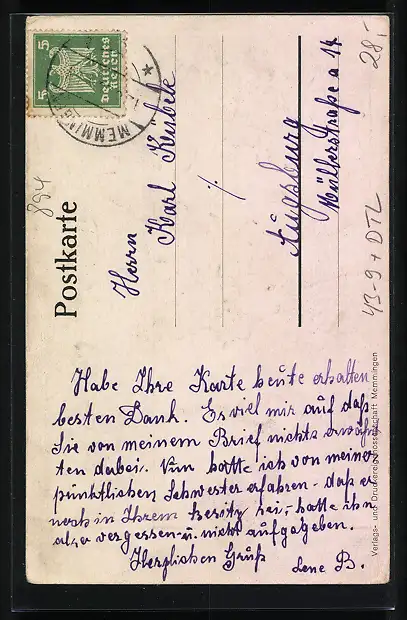 5 Deutsches Reich 5
MEMMINGEN
Postkarte
Herrn
Karl Keubele
Augsburg
Müllerstraße a 14
28,-
894
43-9+DTL
Habe Ihre Karte heute erhalten
besten Dank. Es viel mir auf daß
Sie von meinem Brief nichts erwähn
ten dabei. Nun hatte ich von meiner
pünktlichen Schwester erfahren - daß er
noch in Ihrem besitz sei, - hatte ihn
also vergessen u. nicht aufgegeben.
Herzlichen Gruß
Lene B.
Verlags- und Druckereigenossenschaft Memmingen